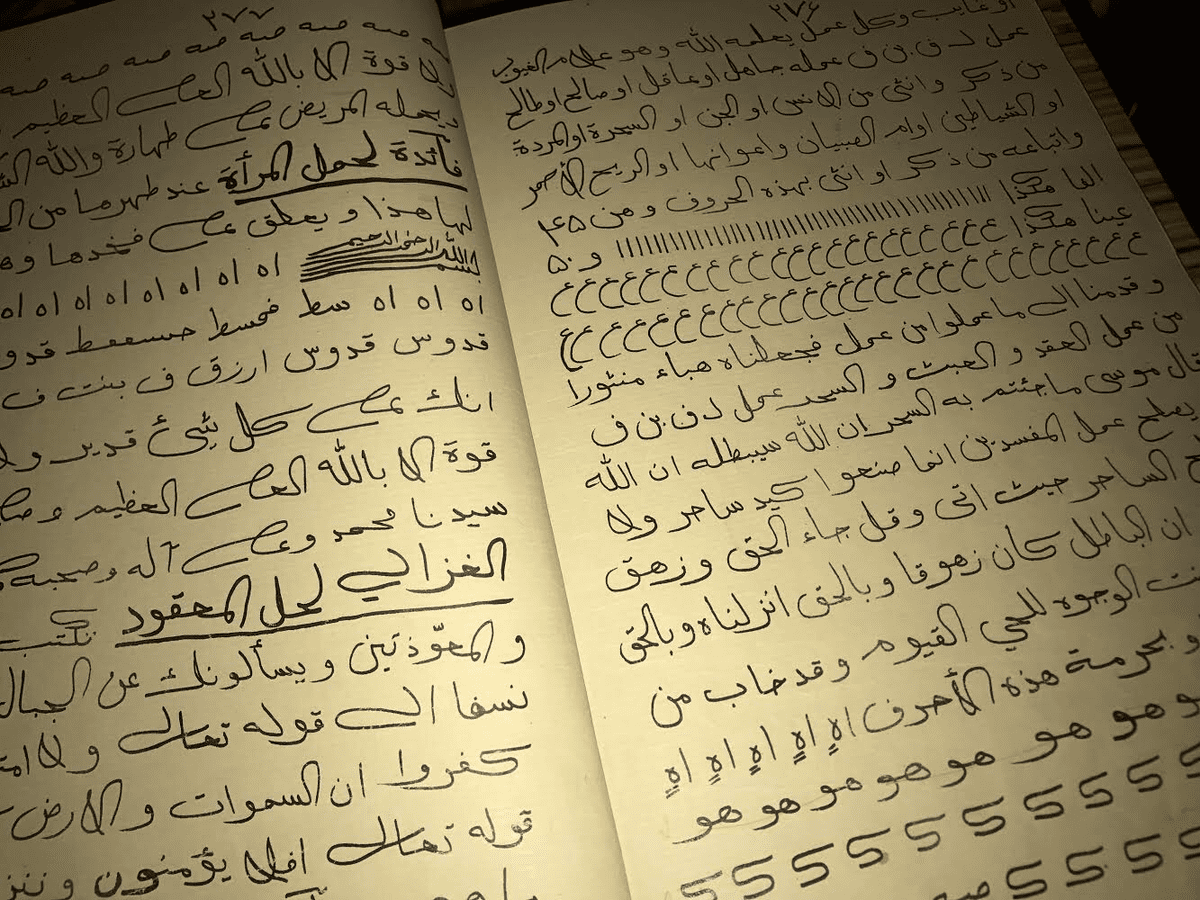 ٢٧۶
او غايب وكل عمل يعلمه الله وهو علام الغيوب
عمل لـ ف بن ف عمله جاهل او عاقل او صالح او طالح
من ذكر وانثى من الانس او الجن او السحرة او المردة
او الشياطين او ام الصبيان واعوانها او الريح الأحمر
واتباعه من ذكر او انثى بهذه الحروف و من ۴۵
الفا هكذا ااااااااااااااااااااااااااااااااااااااااااااا و ۵۰
عينا هكذا ع ع ع ع ع ع ع ع ع ع ع ع ع ع ع ع ع
ع ع ع ع ع ع ع ع ع ع ع ع ع ع ع ع ع ع ع ع ع ع
وقدمنا الى ما عملوا من عمل فجعلناه هباء منثورا
من عمل العقد و العبث و السحر عمل لـ ف بن ف
قال موسى ما جئتم به السحر ان الله سيبطله ان الله
يصلح عمل المفسدين انما صنعوا كيد ساحر ولا
الساحر حيث اتى وقل جاء الحق وزهق
ان الباطل كان زهوقا وبالحق انزلناه وبالحق
الوجوه للحي القيوم وقد خاب من
وبحرمة هذه الأحرف اهٍ اهٍ اهٍ اهٍ اهٍ
هو هو هو هو هو هو هو
٢٧٧
صه صه صه صه صه صه صه
قوة الا بالله العلي العظيم
يحمله المريض على طهارة والله
فائدة لحمل المرأة عند طهرها من
لها هذا و يعلق على فخدها
بسم الله الرحمن الرحيم اه اه اه اه اه اه اه اه
اه اه اه سط فحسط حسععط
قدوس قدوس ارزق ف بنت ف
انك على كل شئ قدير
قوة الا بالله العلي العظيم
سيدنا محمد وعلى آله وصحبه
الغزالي لحل المعقود تكتب
والمعوّذتين ويسألونك عن
نسفا الى قوله تعالى
كفروا ان السموات والارض
قوله تعالى افلا يؤمنون